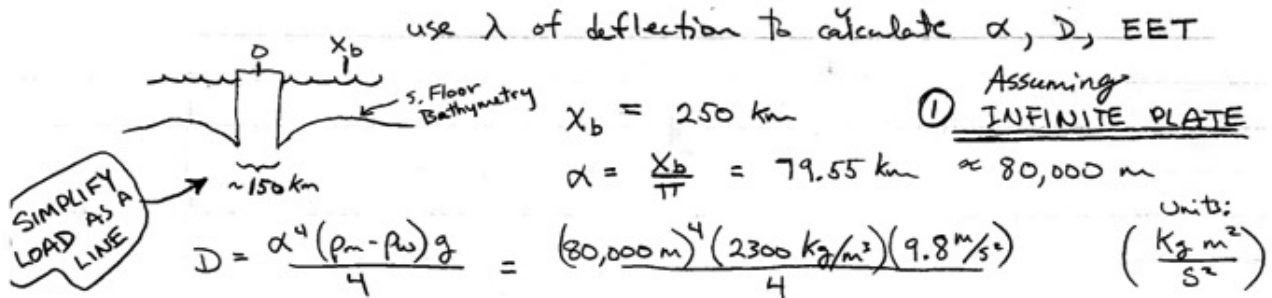 use λ of deflection to calculate α, D, EET
0 X_b
S. Floor
Bathymetry
~150 km
SIMPLIFY
LOAD AS A
LINE
X_b = 250 km
① Assuming
INFINITE PLATE
α = X_b/π = 79.55 km ≈ 80,000 m
D = α⁴(ρm - ρw)g/4 = (80,000 m)⁴(2300 Kg/m³)(9.8 m/s²)/4
Units:
(Kg m²/s²)